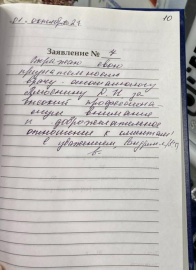 10
01. октября 24
Заявление № 4
Выражаю свою
признательность
врачу-стоматологу
Д. Н. за
высокий профессиона-
лизм внимание
и доброжелательное
отношение к клиентам!
С уважением